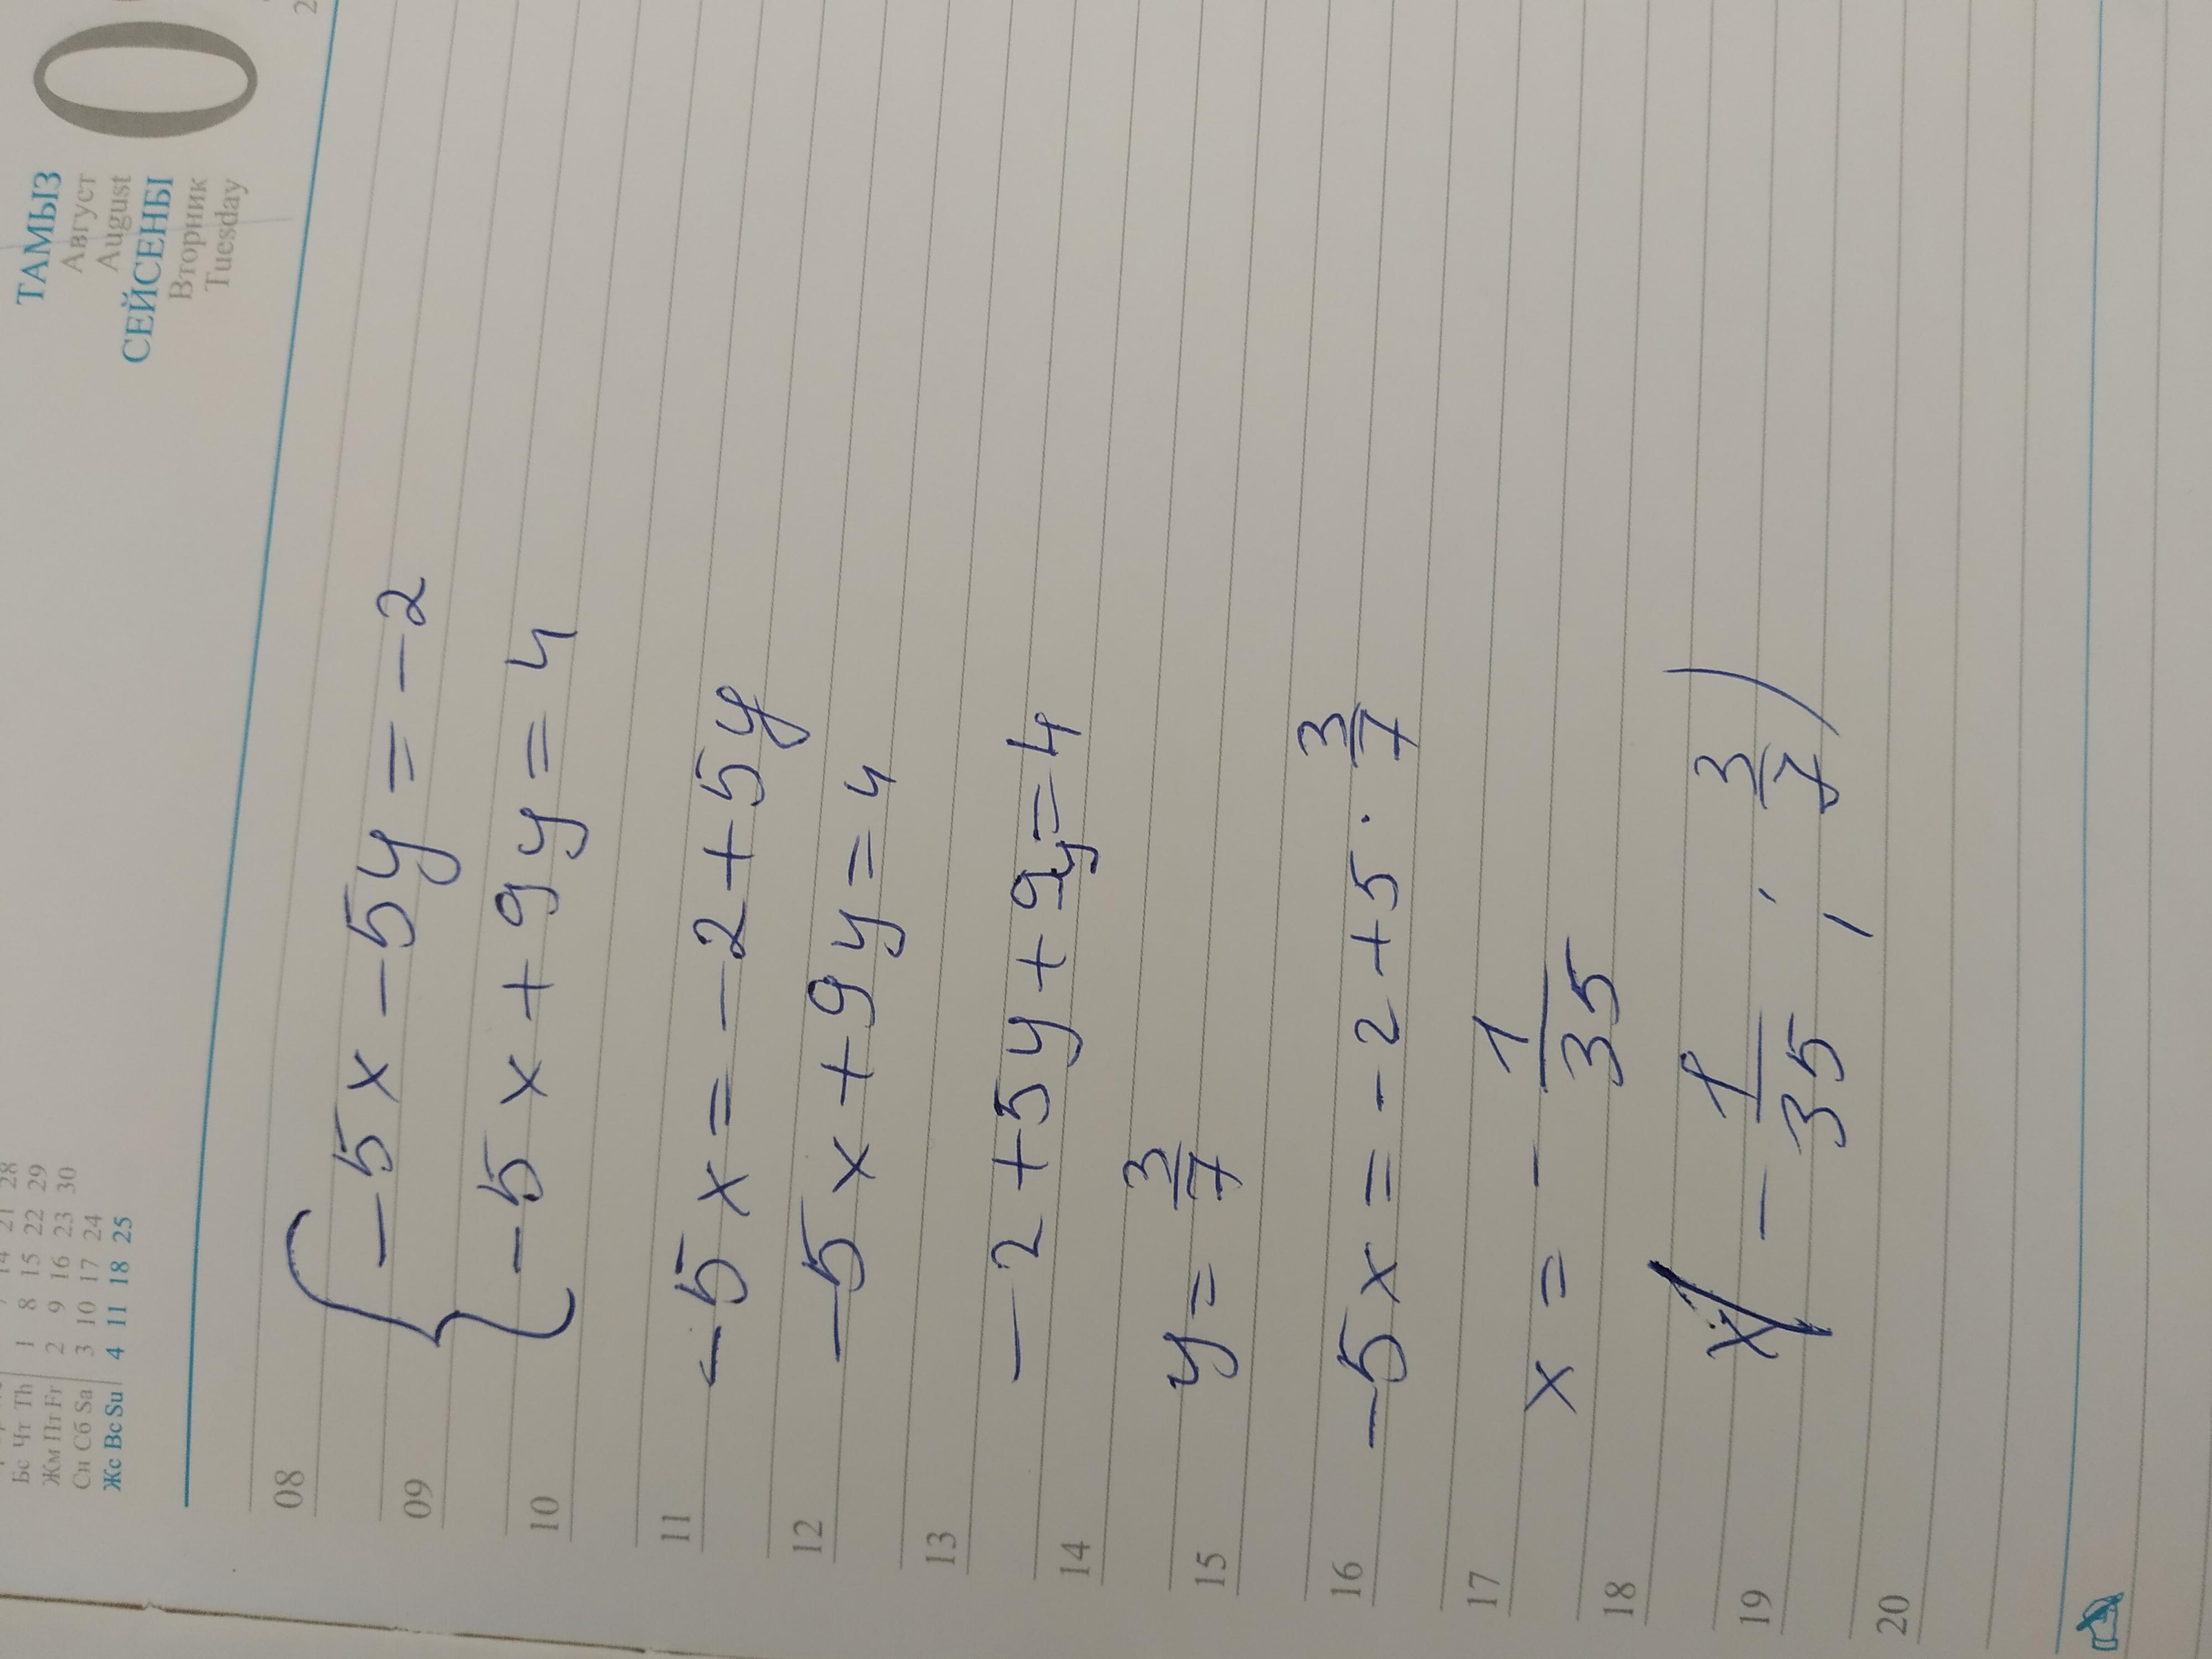 14 21 28
Бс Чт Th 1 8 15 22 29
Жм Пт Fr 2 9 16 23 30
Сн Сб Sa 3 10 17 24
Жс Вс Su 4 11 18 25
ТАМЫЗ
Август
August
СЕЙСЕНБІ
Вторник
Tuesday
0
2
08
09 { -5x - 5y = -2
10 -5x + 9y = 4
11 -5x = -2 + 5y
12 -5x + 9y = 4
13
14 -2 + 5y + 9y = 4
15 y = 3/7
16 -5x = -2 + 5 · 3/7
17 x = - 1/35
18
19 (- 1/35 ; 3/7)
20